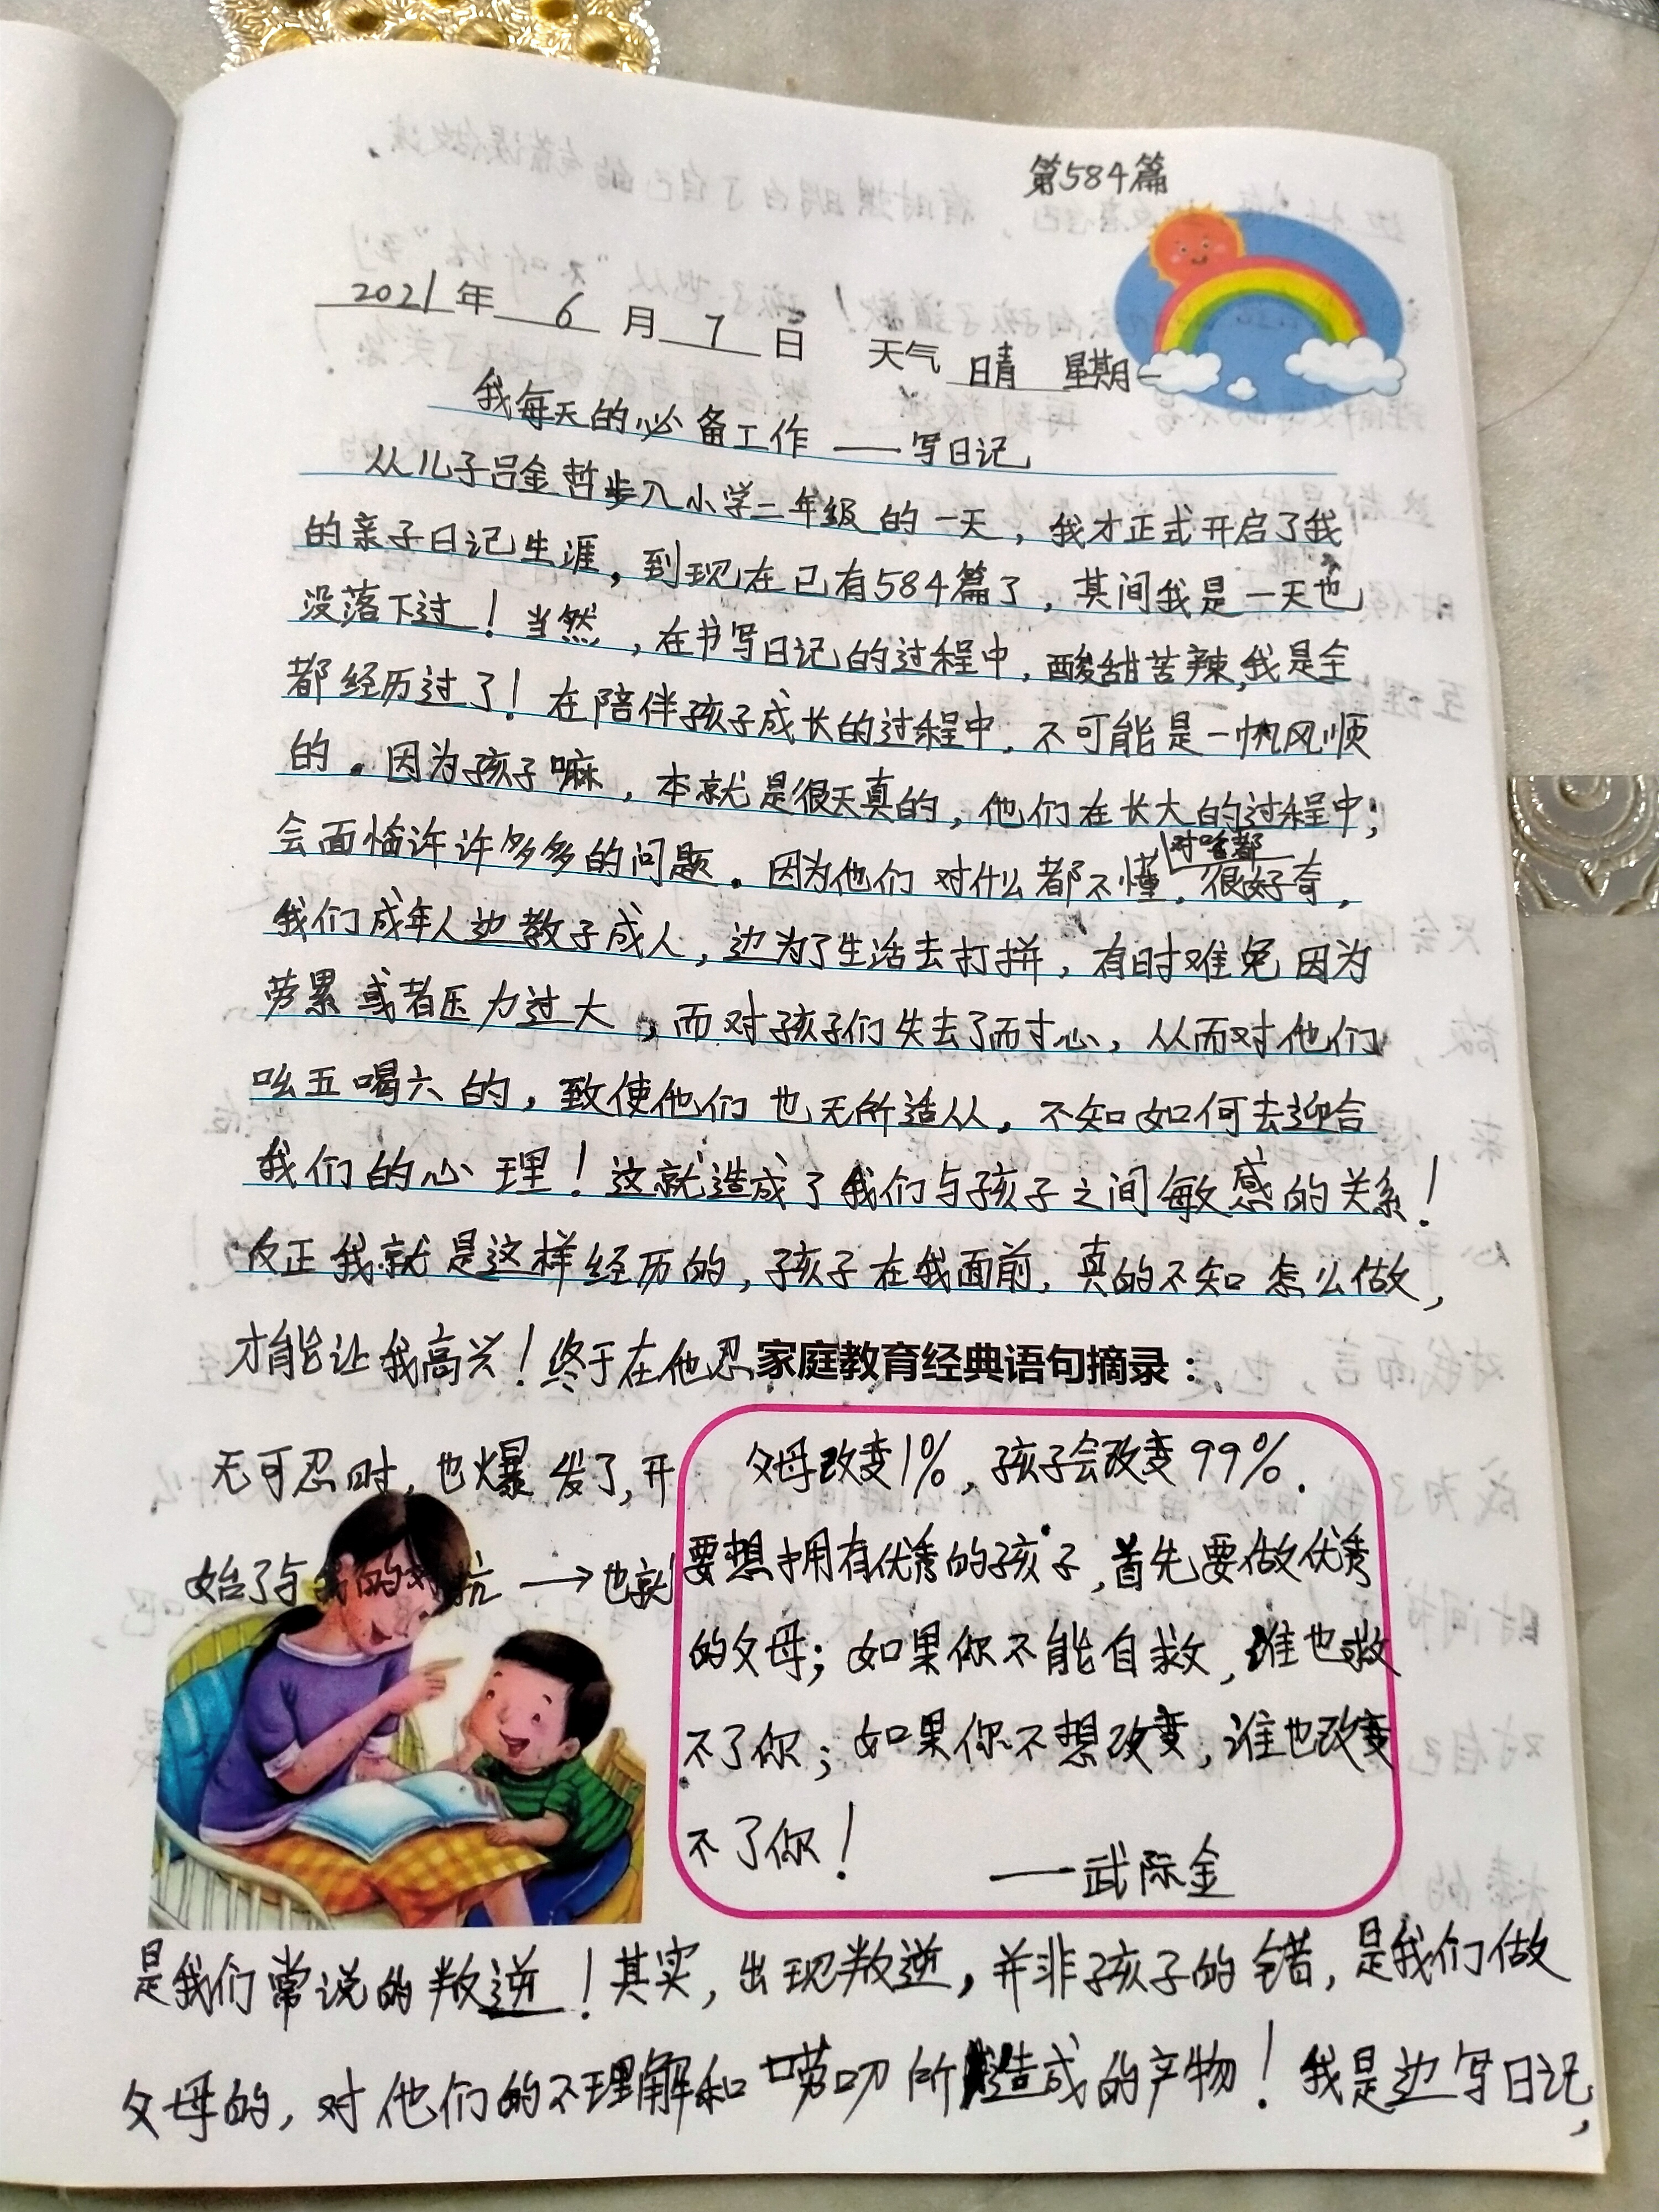 第584篇
2021年 6 月 7 日 天气 晴 星期一
我每天的必备工作——写日记
从儿子吕金哲步入小学二年级的一天，我才正式开启了我
的亲子日记生涯，到现在已有584篇了，其间我是一天也
没落下过！当然，在书写日记的过程中，酸甜苦辣，我是全
都经历过了！在陪伴孩子成长的过程中，不可能是一帆风顺
的。因为孩子嘛，本就是很天真的，他们在长大的过程中，
会面临许许多多的问题。因为他们对什么都不懂，对啥都很好奇，
我们成年人边教子成人，边为了生活去打拼，有时难免因为
劳累或者压力过大，而对孩子们失去了耐心，从而对他们
吆五喝六的，致使他们也无所适从。不知如何去迎合
我们的心理！这就造成了我们与孩子之间敏感的关系！
反正我就是这样经历的，孩子在我面前，真的不知怎么做，
才能让我高兴！终于在他忍
无可忍时，也爆发了，开
始了与我的对抗→也就
家庭教育经典语句摘录：
父母改变1%，孩子会改变99%．
要想拥有优秀的孩子，首先要做优秀
的父母；如果你不能自救，谁也救
不了你；如果你不想改变，谁也改变
不了你！
——武际金
是我们常说的叛逆！其实，出现叛逆，并非孩子的错，是我们做
父母的，对他们的不理解和唠叨所造成的产物！我是边写日记，